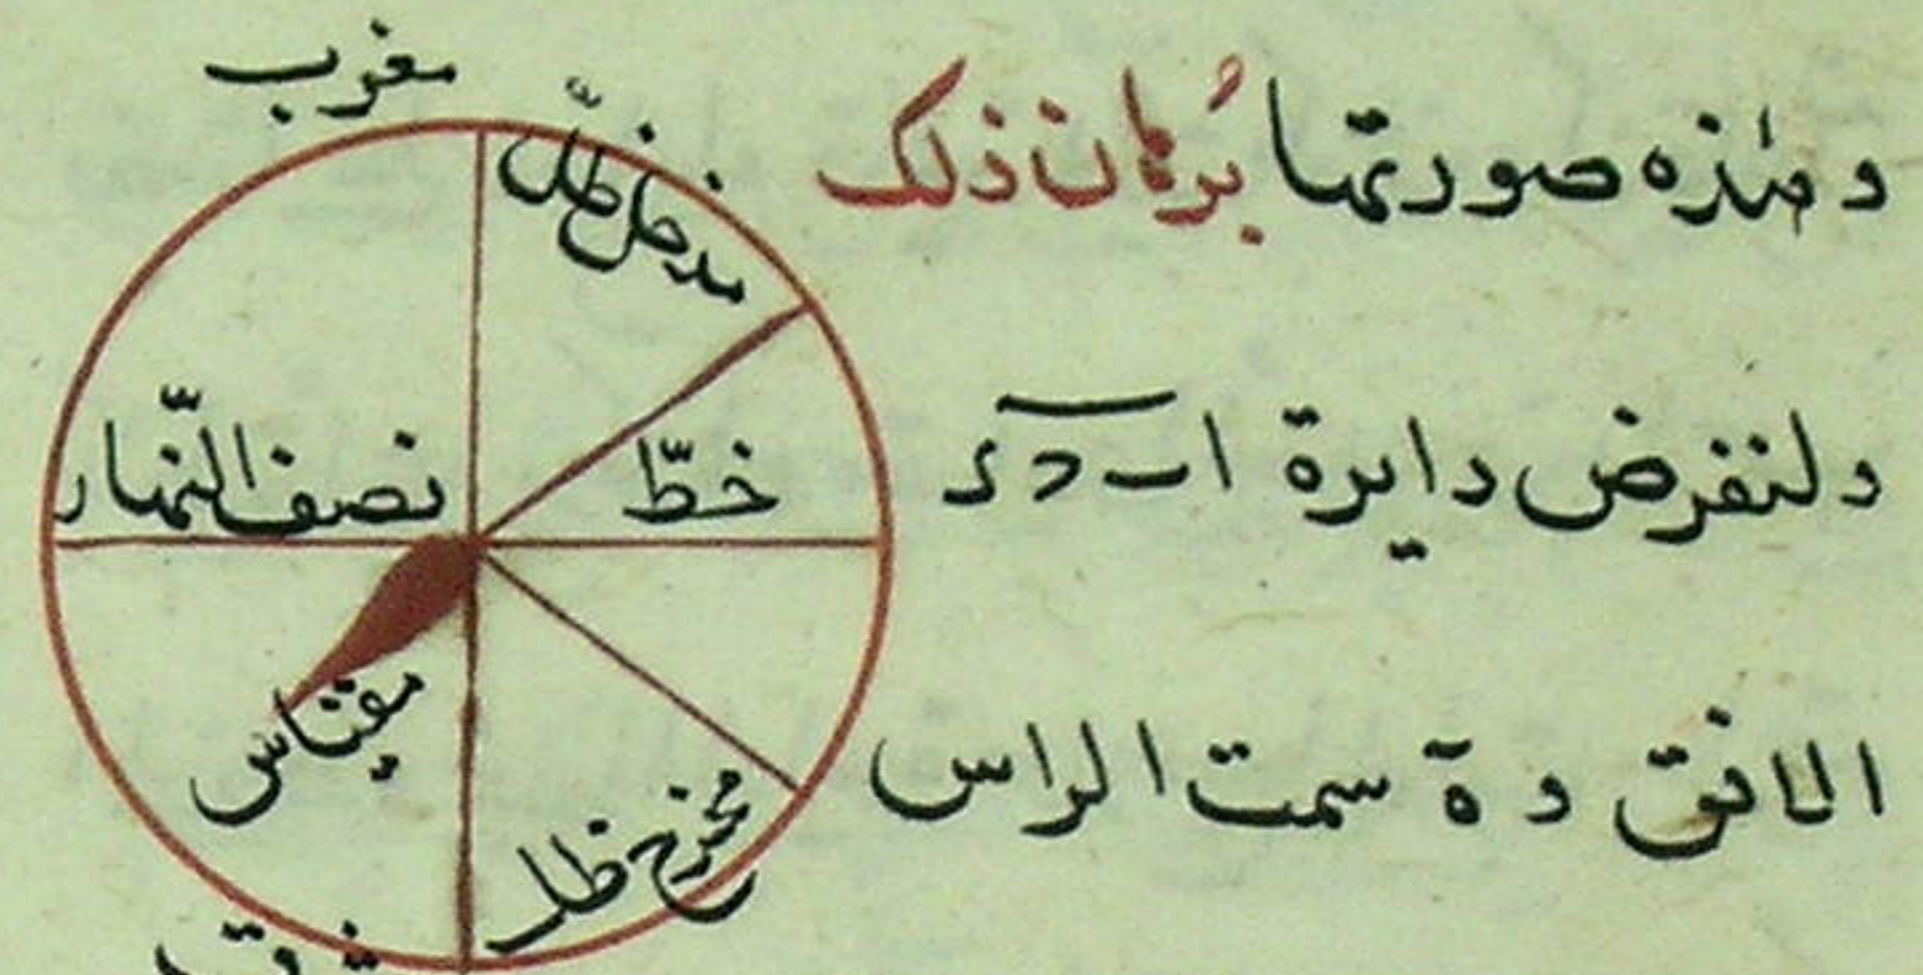 وهذه صورتها برهان ذلك
ولنفرض دايرة ا ب ج د
الافق و ه سمت الراس
مغرب
مدخل ظلّ
خطّ نصف النّهار
مقياس
مخرج ظل